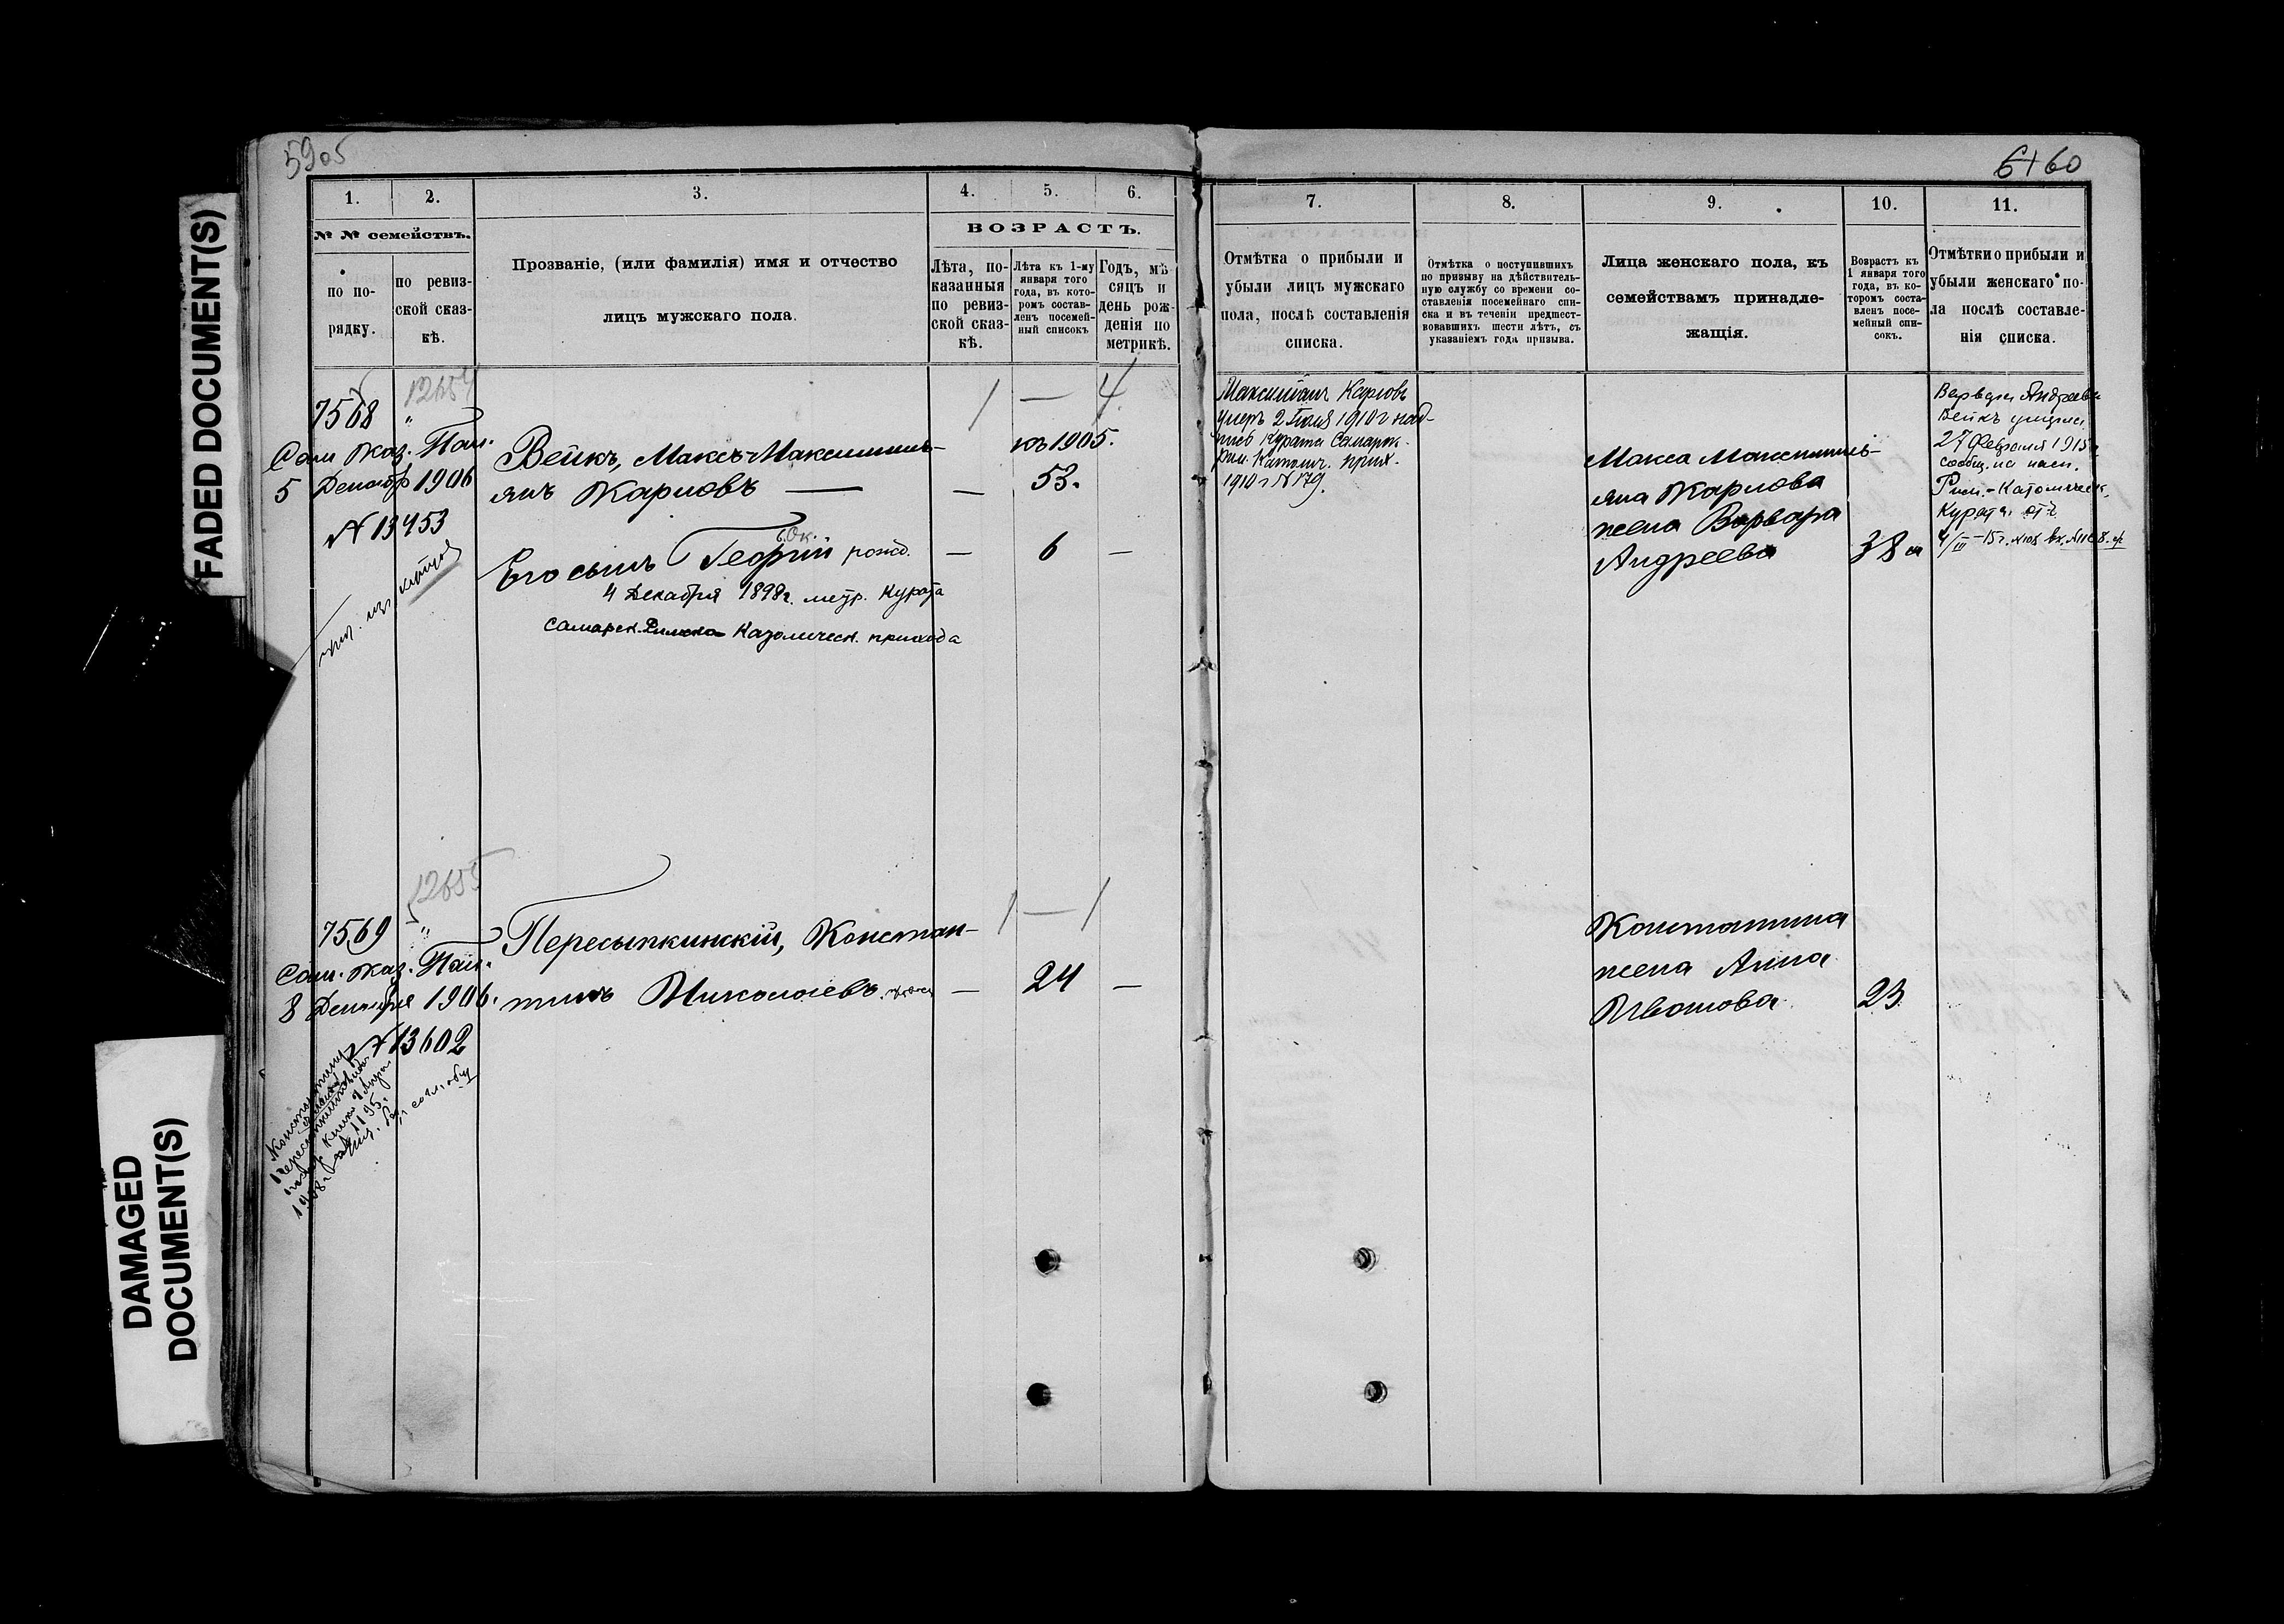 5905
6160
FADED DOCUMENT(S)
DAMAGED
DOCUMENT(S)
1.
2.
3.
4.
5.
6.
№ № семействъ.
по по-
рядку.
по ревиз-
ской сказ-
кѣ.
Прозваніе, (или фамилія) имя и отчество
лицъ мужскаго пола.
ВОЗРАСТЪ.
Лѣта, по-
казанныя
по ревиз-
ской сказ-
кѣ.
Лѣта къ 1-му
января того
года, въ кото-
ромъ состав-
ленъ посемей-
ный списокъ
Годъ, мѣ
сяцъ и
день рож-
денія по
метрикѣ.
7.
8.
9.
10.
11.
Отмѣтка о прибыли и
убыли лицъ мужскаго
пола, послѣ составленія
списка.
Отмѣтка о поступившихъ
по призыву на дѣйствитель-
ную службу со времени со-
ставленія посемейнаго спи-
ска и въ теченіи предшест-
вовавшихъ шести лѣтъ, съ
указаніемъ года призыва.
Лица женскаго пола, къ
семействамъ принадле-
жащія.
Возрастъ къ
1 января того
года, въ ко-
торомъ соста-
вленъ посе-
мейный спи-
сокъ.
Отмѣтки о прибыли и
убыли женскаго по-
ла послѣ составле-
нія списка.
7568
12654
Сам Каз. Пал.
5 Декабр 1906
№ 13453
1 — 4
къ 1905.
Вейкъ, Максъ-Максимиль-
янъ Карловъ — — 53.
Его сынъ Георгій рожд. — 6 —
4 Декабря 1898 г. метр. Курата
Самарск. Римско Католическ. прихода
Максимиліанъ Карловъ
умеръ 2 Іюля 1910 г
Курата Самарск.
Рим. Католич. прих.
1910 г № 179.
Макса Максимиль-
яна Карлова
жена Варвара
Андреева 38
Варвара Андреева
Вейкъ умерла
27 Февраля 1915 г
сообщ. на
Рим.-Католическ.
Курата. от
4/III-15 г.
7569
12655
Сам. Каз. Пал.
8 Декабря 1906.
№ 13602
1 — 1
Пересыпкинскій, Констан-
тинъ Николаевъ — 24 —
Константина
жена Анна
Иванова 23